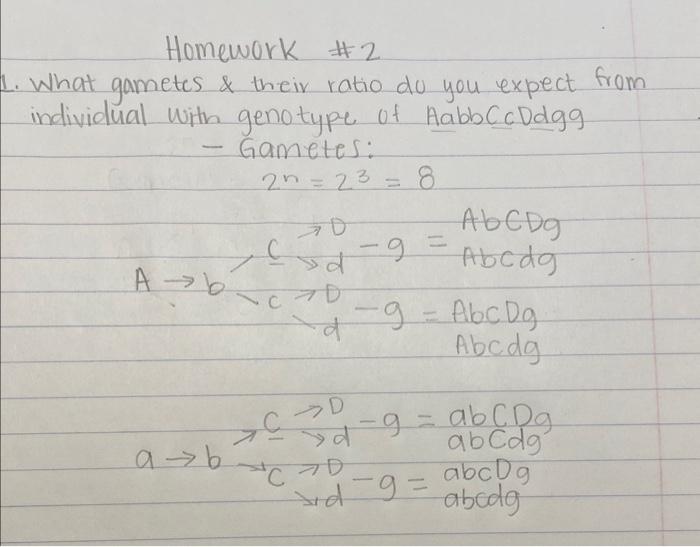 Homework #2
1. What gametes & their ratio do you expect from
individual with genotype of AabbCcDdgg
- Gametes:
2n = 2³ = 8
A → b
C → D
→ d - g = AbCDg
AbCdg
c → D
d - g = AbcDg
Abcdg
a → b
→ C → D
→ d - g = abCDg
abCdg
→ c → D
→ d - g = abcDg
abcdg